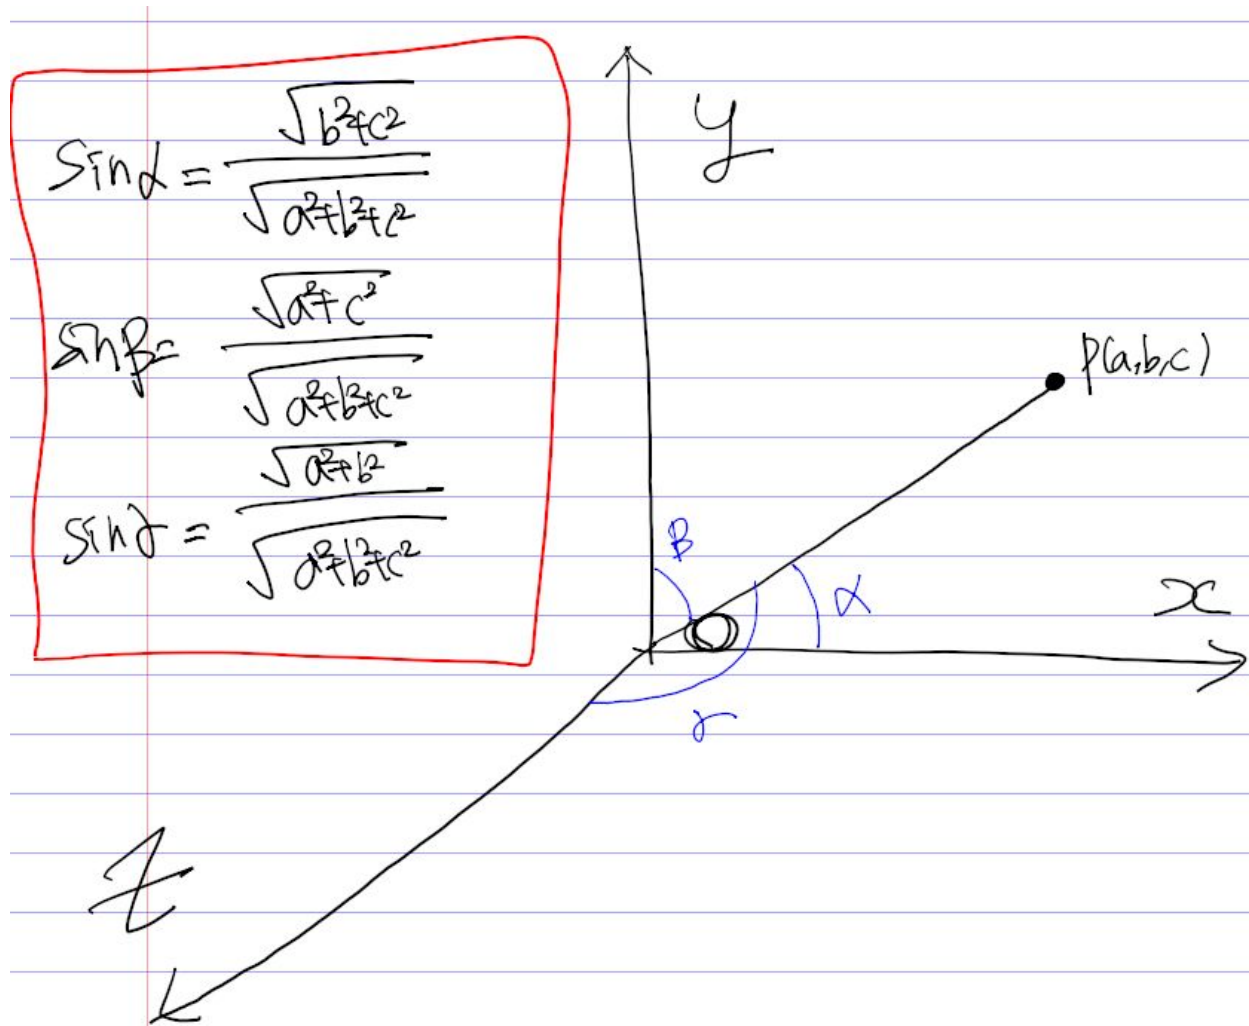 sinα = √(b²+c²) / √(a²+b²+c²)
sinβ = √(a²+c²) / √(a²+b²+c²)
sinγ = √(a²+b²) / √(a²+b²+c²)
y
P(a,b,c)
β
α
x
γ
z